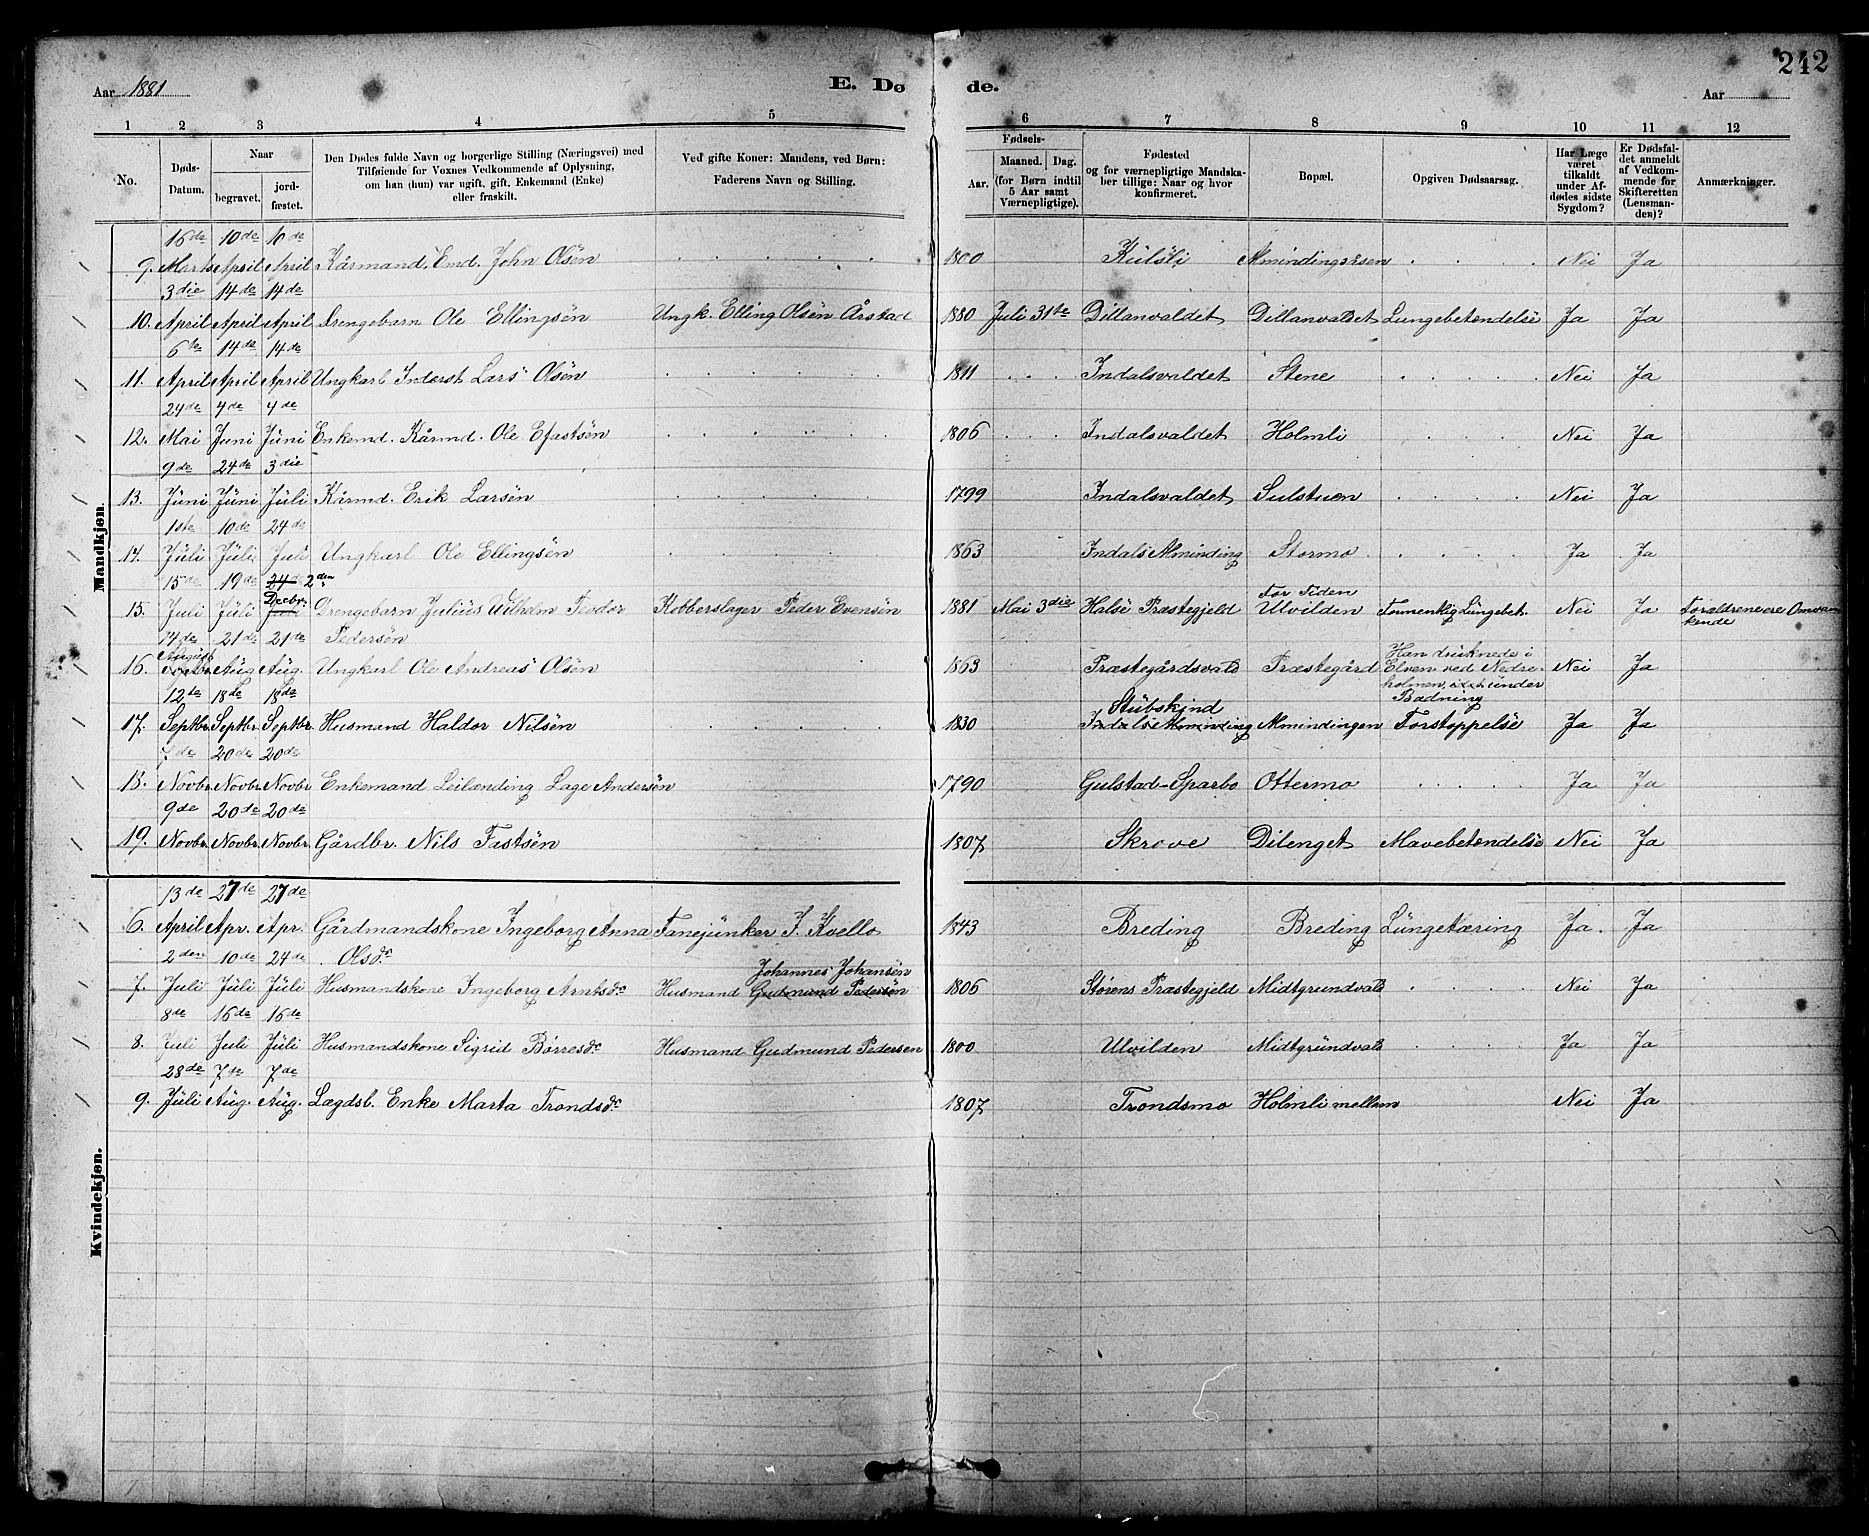 242
Aar 1881
E. Dø de.
Aar
1 2 3 4 5 6 7 8 9 10 11 12
No.
Døds-Datum.
Naar
begravet.
jord-fæstet.
Den Dødes fulde Navn og borgerlige Stilling (Næringsvei) med
Tilføiende for Voxnes Vedkommende af Oplysning,
om han (hun) var ugift, gift, Enkemand (Enke)
eller fraskilt.
Ved gifte Koner: Mandens, ved Børn:
Faderens Navn og Stilling.
Fødsels-
Aar.
Maaned. Dag.
(for Børn indtil
5 Aar samt
Værnepligtige).
Fødested
og for værnepligtige Mandska-
ber tillige: Naar og hvor
konfirmeret.
Bopæl.
Opgiven Dødsaarsag.
Har Læge
været
tilkaldt
under Af-
dødes sidste
Sygdom?
Er Dødsfal-
det anmeldt
af Vedkom-
mende for
Skifteretten
(Lensman-
den)?
Anmærkninger.
Mandkjøn.
16de 10de 10de
9. Marts April April Kårmand. Emd. John Olsen 1800 Kulsli Almindingsåsen Nei Ja
3die 14de 14de
10. April April April Drengebarn Ole Ellingsen Ungk. Elling Olsen Årstad 1880 Juli 31te Dillanvaldet Dillanvaldet Lungebetændelse Ja Ja
6te 14de 14de
11. April April April Ungkarl Inderst Lars Olsen 1811 Indalsvaldet Stene Nei Ja
24de 4de 4de
12. Mai Juni Juni Enkemd. Kårmd. Ole Efastsen 1806 Indalsvaldet Holmli Nei Ja
9de 24de 3die
13. Juni Juni Juli Kårmd. Erik Larsen 1799 Indalsvaldet Sulstuen Nei Ja
1ste 10de 24de
14. Juli Juli Juli Ungkarl Ole Ellingsen 1863 Indals Alminding Stormo Ja Ja
15de 19de 24de 2den
Decbr. For Tiden
15. Juli Juli Juli Drengebarn Julius Wilhelm Teodor Kobberslager Peder Evensen 1881 Mai 3die Halse Præstegjeld Ulvilden Lungebet. Nei Ja Forældrene ere Omvan
kende
14de 21de 21de Pedersen
August Han druknede i
16. Aug Aug. Ungkarl Ole Andreas Olsen 1863 Præstegårdsvald Præstegård Elven ved Nedre- Nei Ja
holmen, under
12te 18de 18de Stubskind Badning
17. Septbr. Septbr. Septbr. Husmand Haldor Nilsen 1830 Indalse Alminding Almindingen Forstoppelse Ja Ja
7de 20de 20de
18. Novbr. Novbr. Novbr. Enkemand Leilænding Lage Andersen 1790 Gulstad-Sparbo Ottermo Ja Ja
9de 20de 20de
19. Novbr. Novbr. Novbr. Gårdbr. Nils Fastsen 1807 Skrove Dilenget Mavebetændelse Nei Ja
Kvindekjøn.
13de 27de 27de
6. April Apr. Apr. Gårdmandskone Ingeborg Anna Fanejunker J. Kvello 1843 Breding Breding Lungetæring Ja. Ja
2den 10de 24de Olsd. Johannes Johansen
7. Juli Juli Juli Husmandskone Ingeborg Arntsdr Husmand Gudmund Pedersen 1806 Størens Præstegjeld Midtgrundvald Nei Ja
8de 16de 16de
8. Juli Juli Juli Husmandskone Sigrid Børresdr Husmand Gudmund Pedersen 1800 Ulvilden Midtgrundvald Ja Ja
28de 7de 7de
9. Juli Aug. Aug. Lægdsl. Enke Marta Trondsdr 1807 Trondsmo Holmli mellem Nei Ja